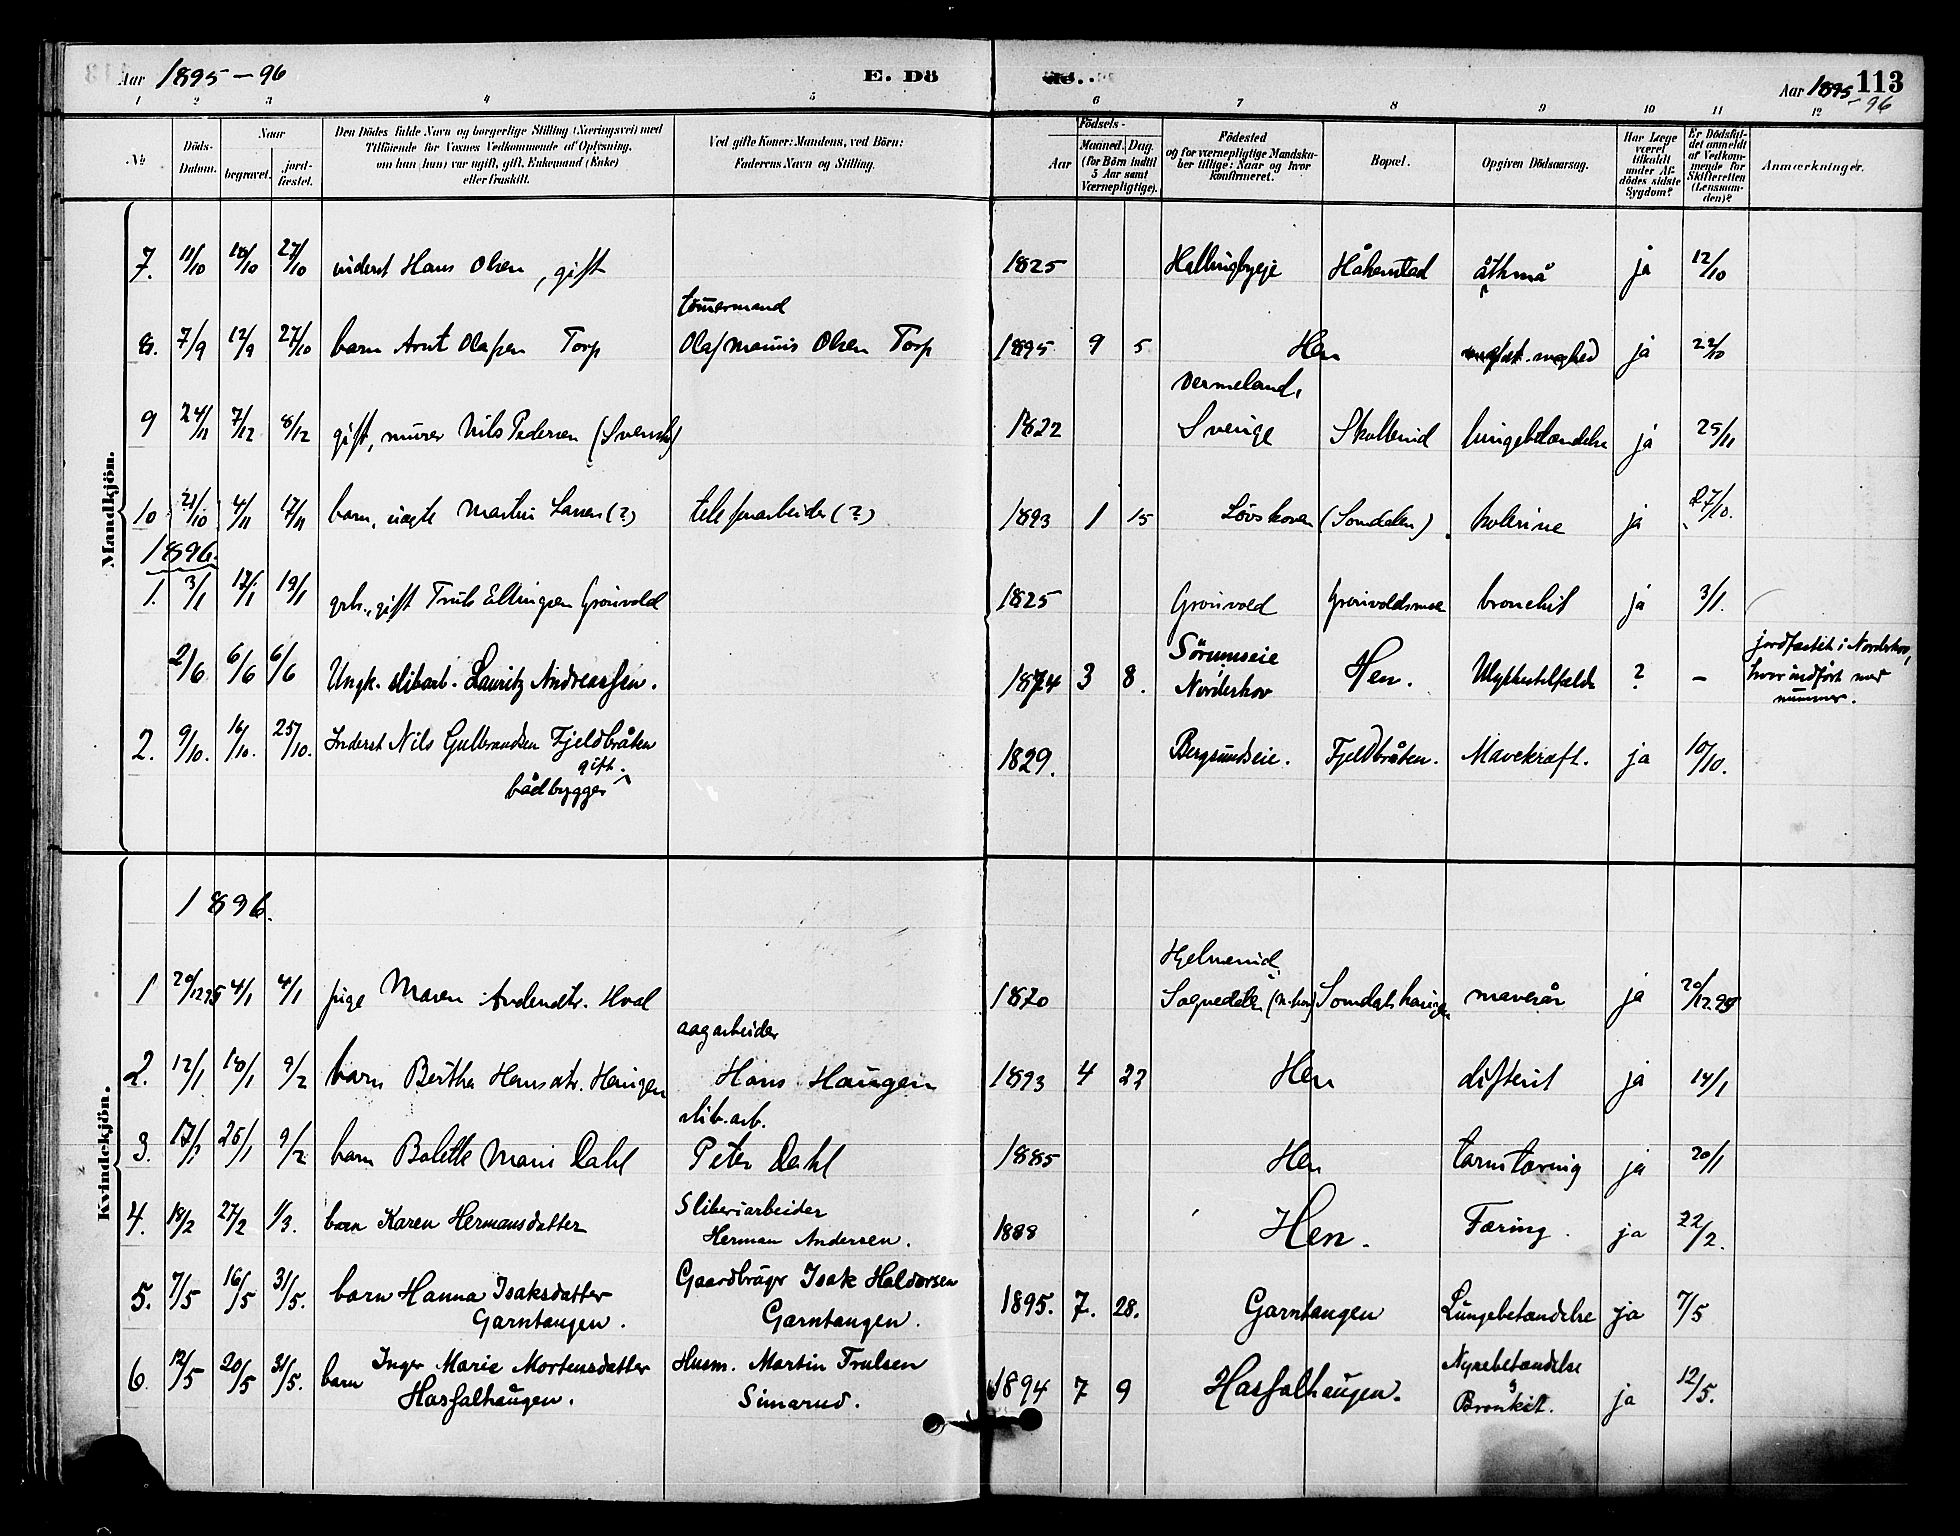 Aar 1895-96
E. Dö
de.
Aar 1895-96
113
1 2 3 4 5 6 7 8 9 10 11 12
No.
Döds-Datum.
Naar
begravet.
jordfæstet.
Den Dödes fulde Navn og borgerlige Stilling (Næringsvei) med
Tilföiende for Voxnes Vedkommende af Oplysning,
om han (hun) var ugift, gift, Enkemand (Enke)
eller fraskilt.
Ved gifte Koner: Mandens, ved Börn:
Faderens Navn og Stilling.
Födsels-
Aar
Maaned. Dag.
(for Börn indtil
5 Aar samt
Værnepligtige).
Födested
og for værnepligtige Mandska-
ber tillige: Naar og hvor
konfirmeret.
Bopæl.
Opgiven Dödsaarsag.
Har Læge
været
tilkaldt
under Af-
dödes sidste
Sygdom?
Er Dödsfal-
det anmeldt
af Vedkom-
mende for
Skifteretten
(Lensman-
den)?
Anmærkninger.
Mandkjön.
7. 11/10 18/10 27/10 inderst Hans Olsen, gift 1825 Hallingbyeje Håkenstad åthmå ja 12/10
tömermand
8. 7/9 12/9 27/10 barn Arnt Olafsen Torp Olaf Olsen Torp 1895 9 5 Hen ja 22/10
Vermeland,
9 24/11 7/12 8/12 gift, murer Nils Pedersen (Svensk) 1822 Sverige Skollerud lungebetændelse ja 25/11
10 21/10 4/11 17/11 barn, uægte Martin Larsen (?) telefonarbeider (?) 1893 1 15 Lövskoven (Somdalen). kolerine ja 27/10.
1896.
1. 3/1 17/1 19/1 grb., gift Truls Ellingsen Grönvold 1825 Grönvold Grönvoldsmoe bronchit ja 3/1.
2/6 6/6 6/6 Ungk. slibarb. Lauritz Andreassen. 1874 3 8. Sörumseie Norderhov Hen. Ulykkestilfælde ? - jordfæstet i Norderhov,
hvor indført med
nummer.
2. 9/10. 16/10. 25/10. Inderst Nils Gulbrandsen Fjeldbråten 1829. Bergsundseie. Fjeldbråten. Mavekræft. ja 10/10.
gift.
bådbygger
Kvindekjön.
1896.
Hjelmerud,
1 20/12 95 4/1 4/1 pige Maren Andersdtr. Hval 1870 Soknedalen (N.hov) Somdalshaugen mavesår ja 20/12 95
sagarbeider
2. 12/1 18/1 9/2 barn Berthe Hansdtr. Haugen Hans Haugen 1893 4 22 Hen difterit ja 14/1
slib.arb.
3. 17/1 25/1 9/2 barn Bolette Marie Dahl Peter Dahl 1885 Hen tarmtæring ja 20/1
Sliberiarbeider
4. 18/2 27/2 1/3. barn Karen Hermansdatter Herman Andersen. 1888 Hen. Tæring. ja 22/2.
5. 7/5 16/5 31/5. barn Hanna Isaksdatter Gaardbruger Isak Haldorsen 1895. 7. 28. Garntangen Lungebetændelse ja 7/5
Garntangen. Garntangen.
6. 12/5 20/5 31/5. barn Inger Marie Mortensdatter Husm. Martin Trulsen 1894 7 9 Hasfalhaugen. Nyrebetændelse ja 12/5.
Hasfalhaugen. Simarud. & Bronkit.